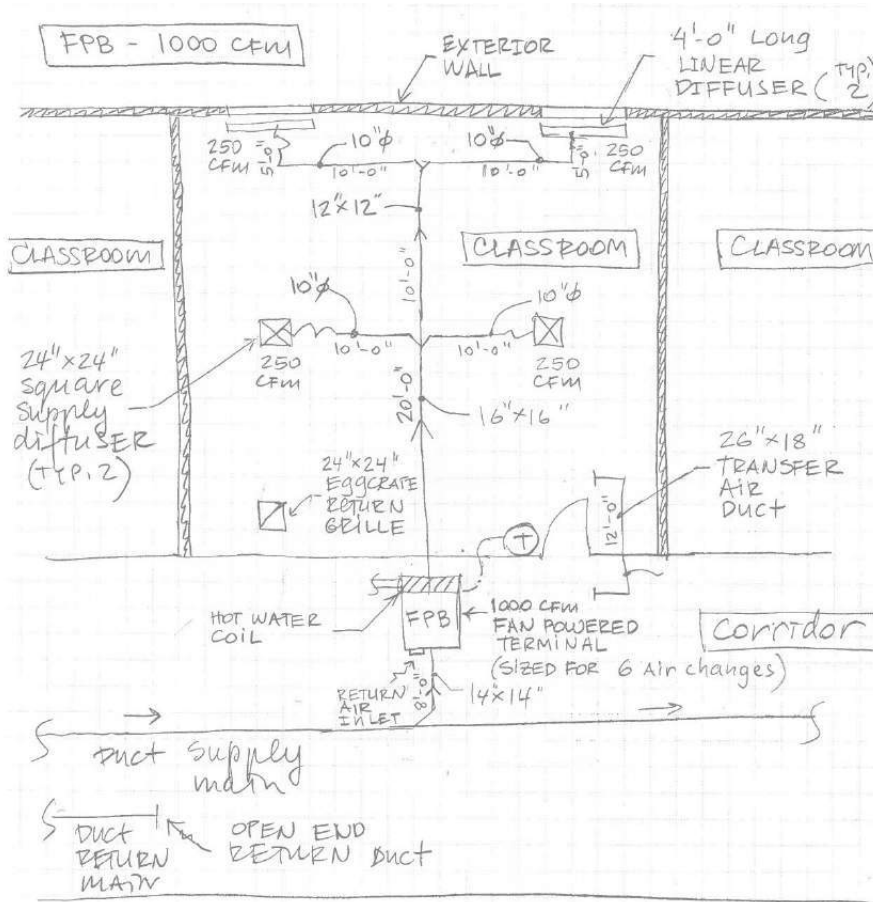 FPB - 1000 CFM
EXTERIOR
WALL
4'-0" Long
LINEAR
DIFFUSER (TYP. 2)
250
CFM
5'-0"
10"φ
10'-0"
10"φ
10'-0"
5'-0"
250
CFM
12"x12"
CLASSROOM
CLASSROOM
CLASSROOM
10'-0"
10"φ
10"φ
10'-0"
10'-0"
250
CFM
250
CFM
24"x24"
Square
Supply
diffuser
(TYP. 2)
20'-0"
16"x16"
24"x24"
EGGCRATE
RETURN
GRILLE
26"x18"
TRANSFER
AIR
DUCT
12'-0"
T
HOT WATER
COIL
FPB
1000 CFM
FAN POWERED
TERMINAL
(SIZED FOR 6 Air changes)
Corridor
RETURN
AIR
INLET
8'-0"
14"x14"
Duct Supply
main
DUCT
RETURN
MAIN
OPEN END
RETURN Duct